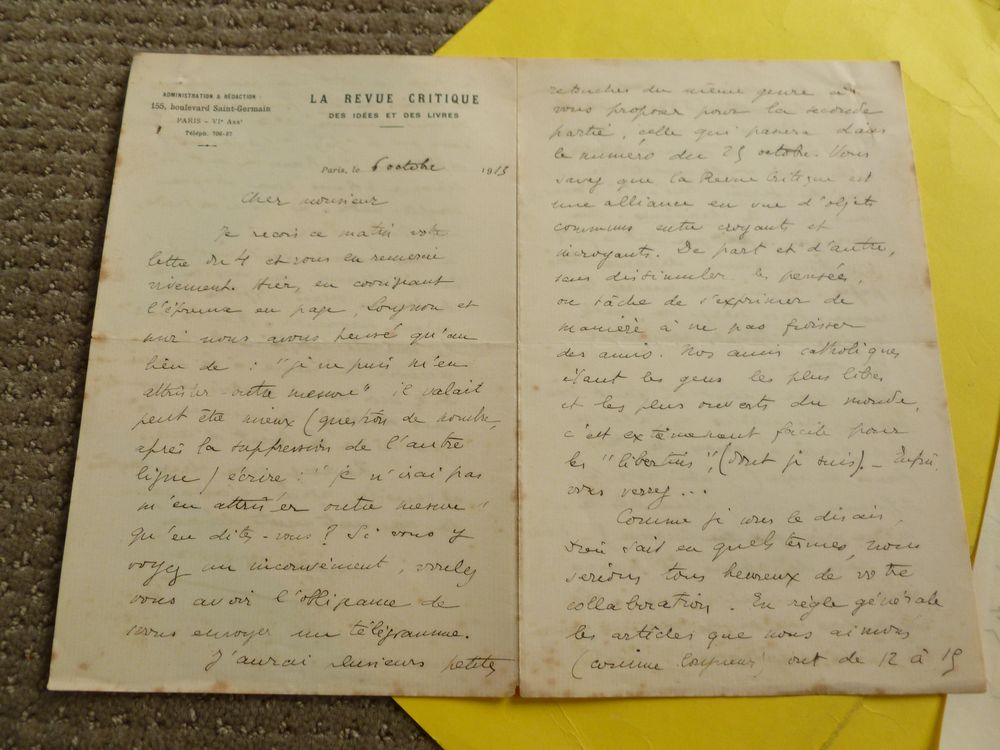 ADMINISTRATION & RÉDACTION :
155, boulevard Saint-Germain
PARIS - VIe Arrt
Téléph. 706-87
LA REVUE CRITIQUE
DES IDÉES ET DES LIVRES
Paris, le 6 octobre 1913
Cher monsieur
Je reçois ce matin votre
lettre du 4 et vous en remercie
vivement. Hier, en corrigeant
l'épreuve en page, Longnon et
moi nous avons pensé qu'au
lieu de : "je ne puis m'en
attrister outre mesure" il valait
peut être mieux (question de nombre,
après la suppression de l'autre
ligne) écrire : "je n'irai pas
m'en attrister outre mesure"
qu'en dites-vous ? Si vous y
voyez un inconvénient, veuillez
vous avoir l'obligeance de
nous envoyer un télégramme.
J'aurai plusieurs petites
retouches du même genre à
vous proposer pour la seconde
partie, celle qui passera dans
le numéro du 25 octobre. Vous
savez que la Revue Critique est
une alliance en vue d'objets
communs entre croyants et
incroyants. De part et d'autre,
sans dissimuler les pensées,
on tâche de s'exprimer de
manière à ne pas froisser
des amis. Nos amis catholiques
étant les gens les plus libres
et les plus ouverts du monde,
c'est extêmement facile pour
les "libertins", (dont je suis). - Enfin,
vous verrez...
Comme je vous le disais,
Dieu sait en quels termes, nous
serions tous heureux de votre
collaboration. En règle générale
les articles que nous aimons
(comme longueur) ont de 12 à 15